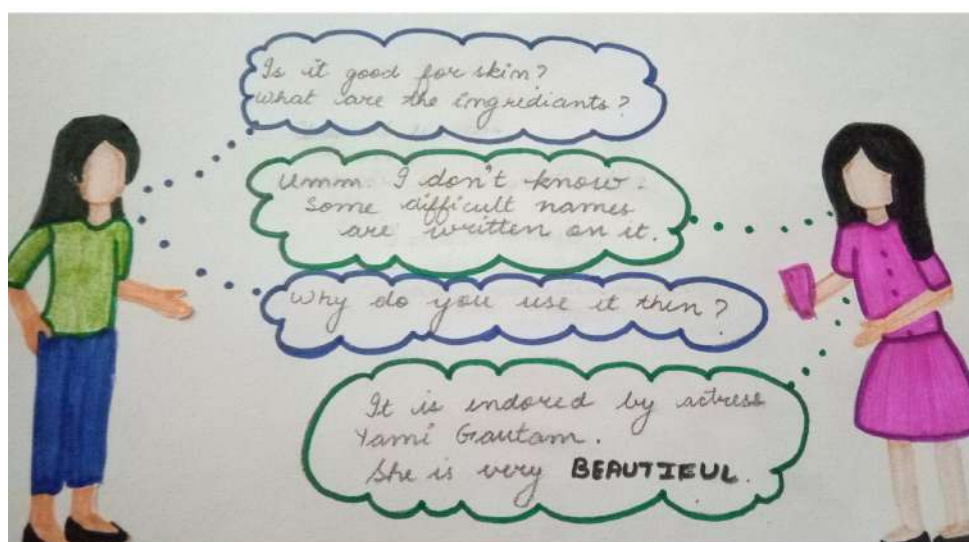 Is it good for skin?
What are the ingrediants?
Umm. I don't know.
Some difficult names
are written on it.
Why do you use it then?
It is indored by actress
Yami Gautam.
She is very BEAUTIFUL.